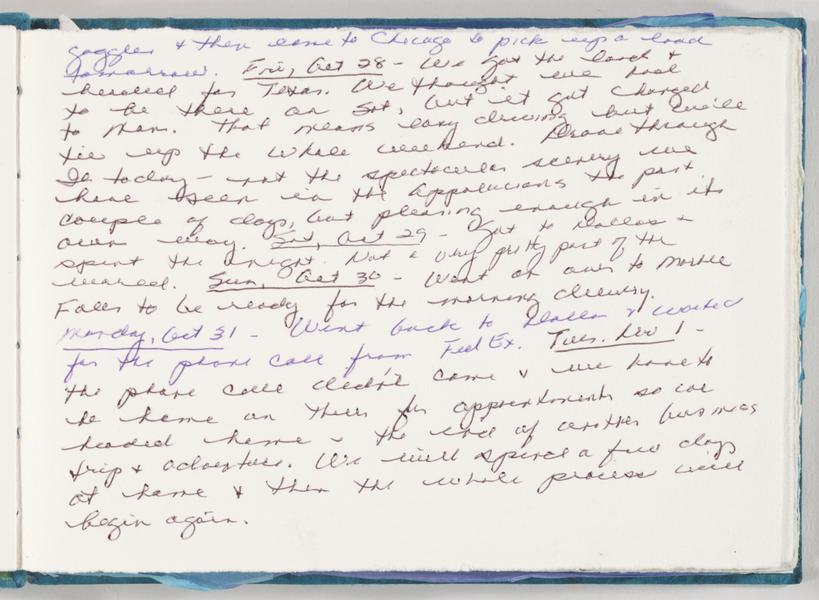 goggles & then come to Chicago to pick up a load
tomorrow. Fri, Oct 28 - We got the load &
headed for Texas. We thought we had
to be there on Sat, but it got changed
to Mon. That means easy driving but we'll
tie up the whole weekend. Drove through
Il today - not the spectacular scenery we
have seen in the Appalacians the past
couple of days, but pleasing enough in its
own way. Sat, Oct 29 - Got to Dallas &
spent the night. Not a very pretty part of the
Sun, Oct 30 - Went on over to
Falls to be ready for the morning delivery.
Monday, Oct 31 - Went back to Dallas & waited
for the phone call from Fed Ex. Tues. Nov 1 -
the phone call didn't come & we have to
be home on Thurs for appointments so we
headed home - the end of another business
trip & adventure. We will spend a few days
at home & then the whole process will
begin again.